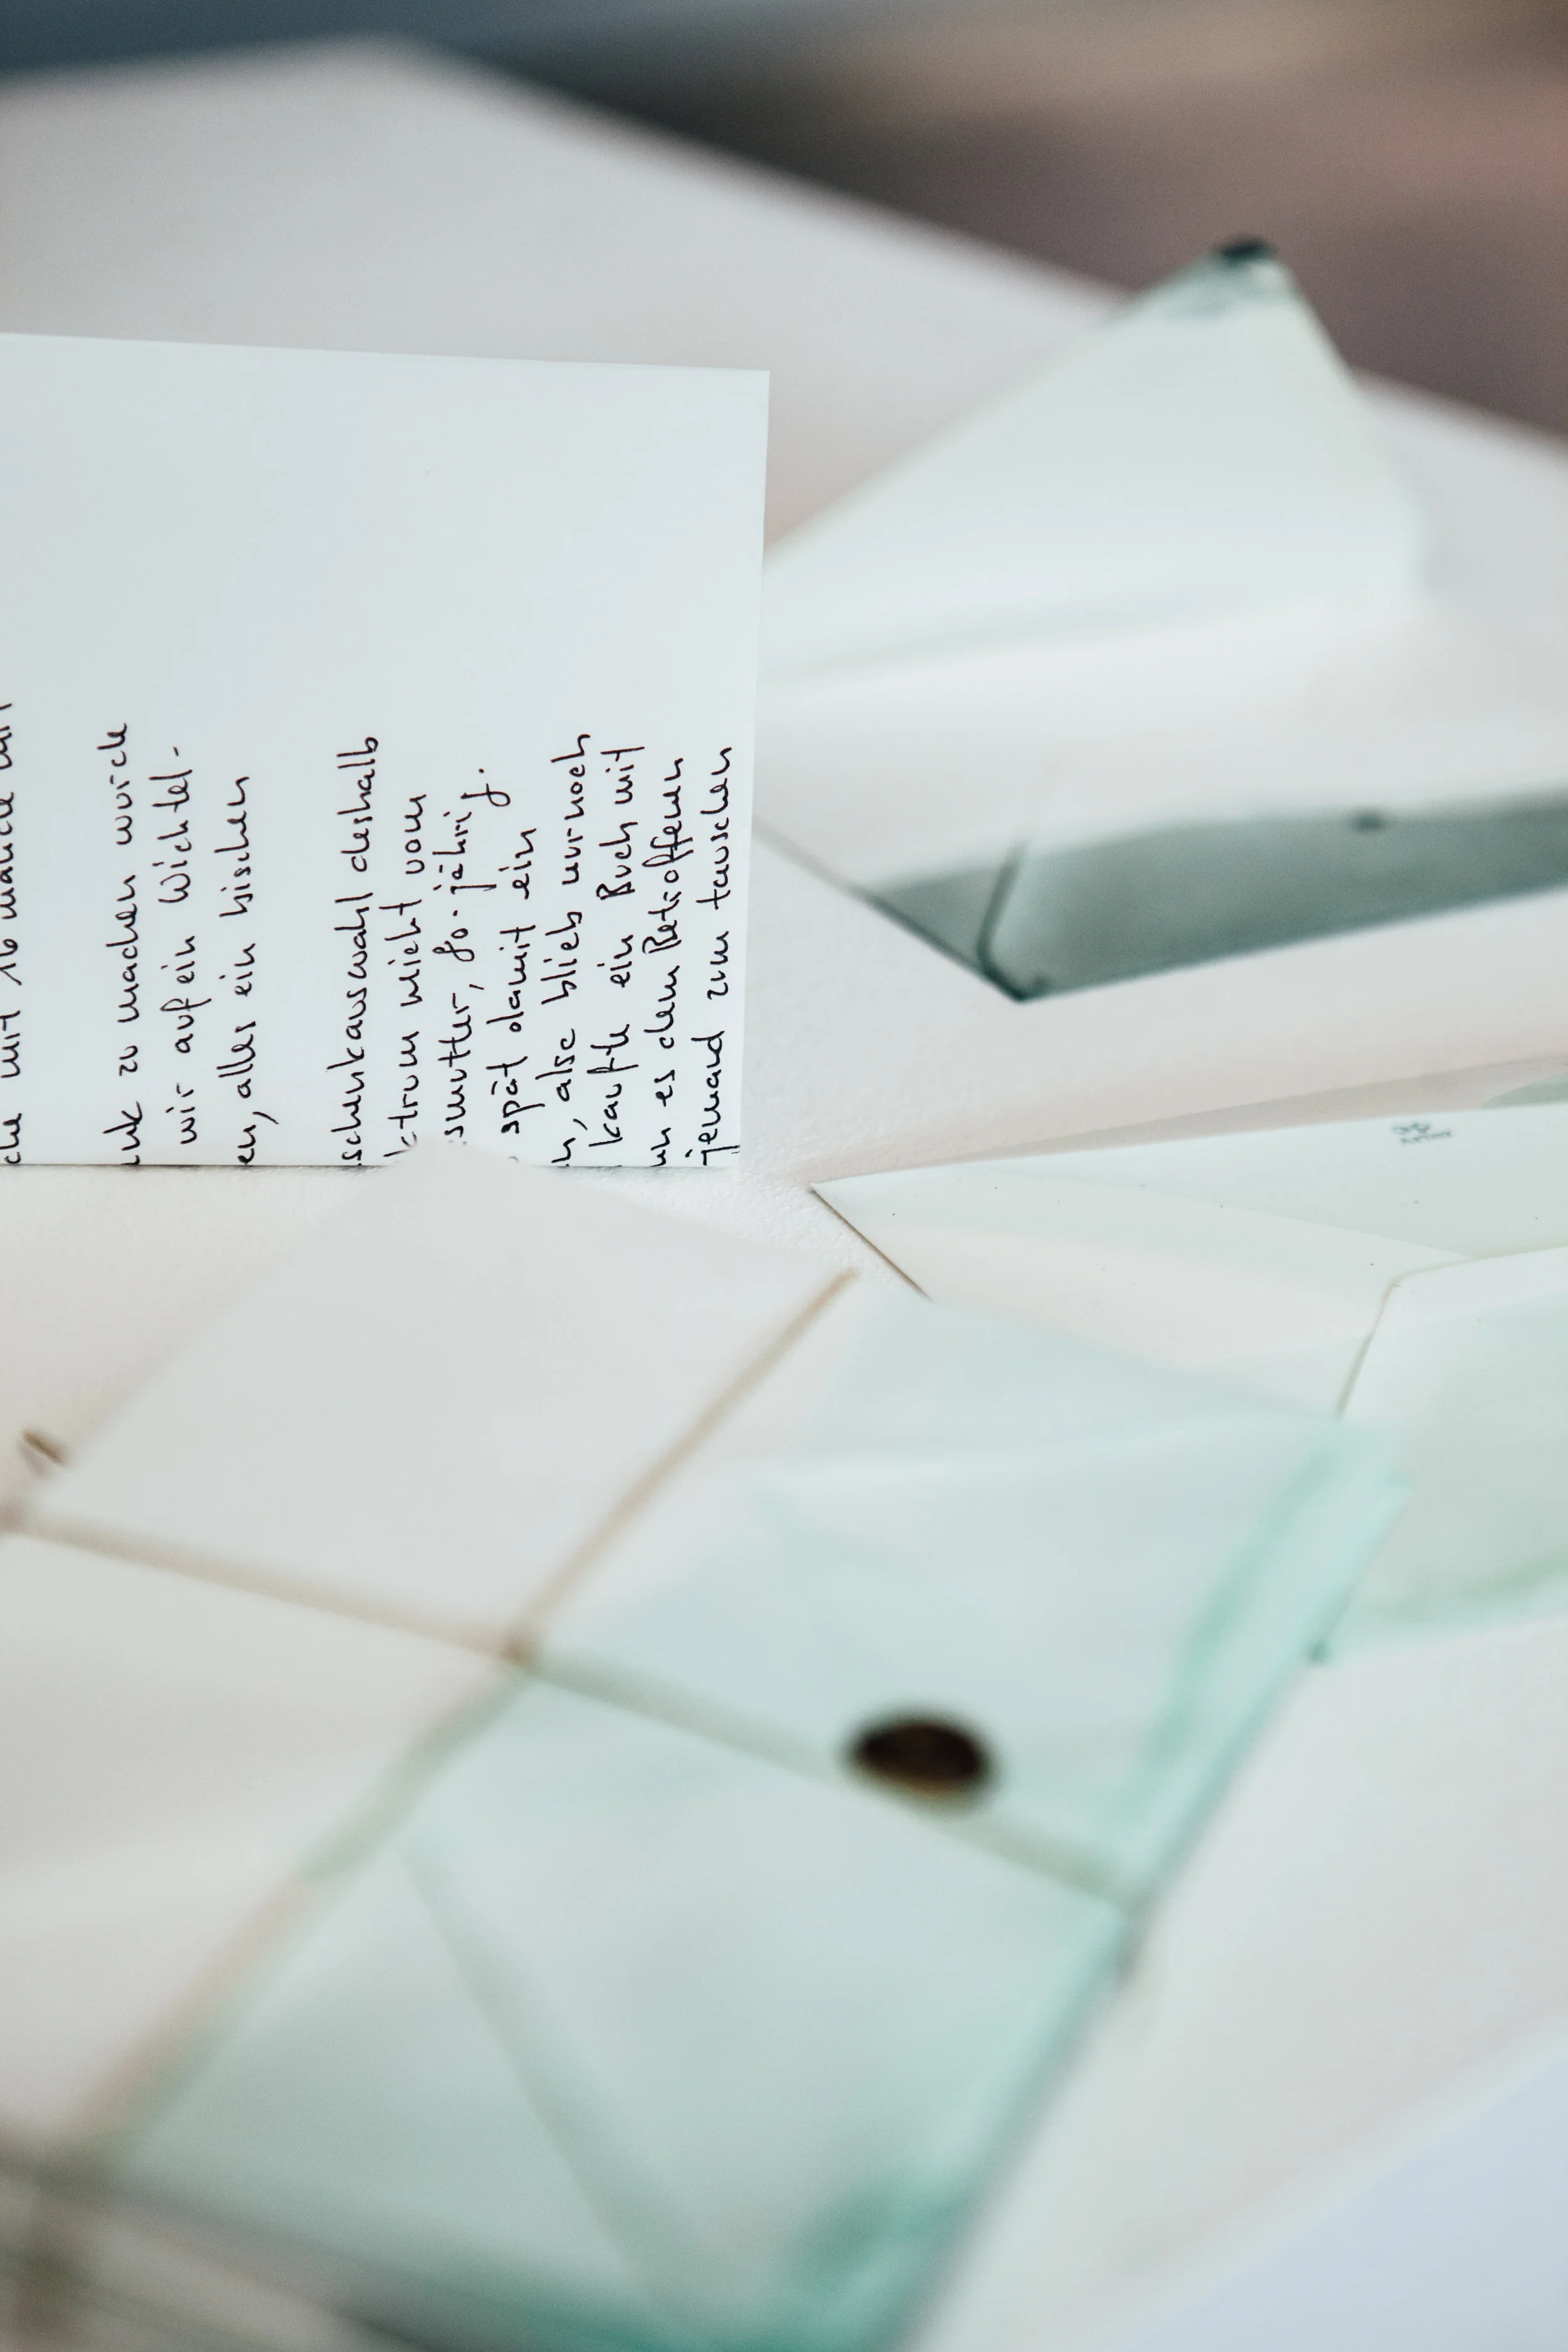 che mit 16
nk zu machen wurde
wir auf ein Wichtel-
en, alles ein bischen
schenkauswahl deshalb
ktrum nicht vom
smutter, 80-jährig.
spät damit ein
n, also blieb nurnoch
kaufte ein Buch mit
nn es dem Betroffenen
jemand zum tauschen